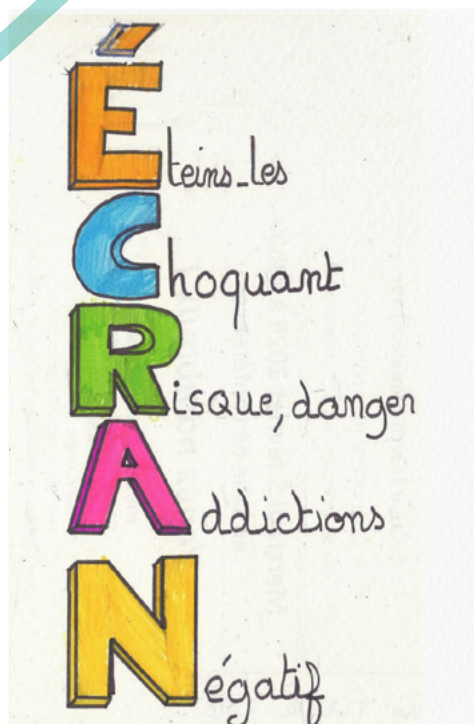 Éteins-les
Choquant
Risque, danger
Addictions
Négatif